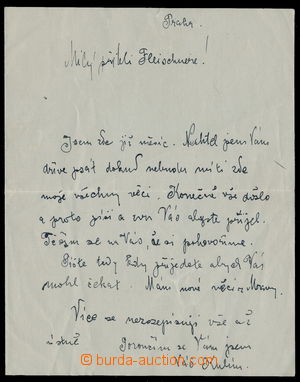 Praha.
Milý příteli Fleischnere!
Jsem zde již měsíc. Nechtěl jsem Vám
dříve psát dokud nebudu míti zde
moje všechny věci. Konečně vše došlo
a proto píši a zvu Vás abyste přijel.
Těším se na Vás, že si pohovoříme.
Pište tedy kdy přijedete abych Vás
mohl čekat. Mám nové věci z Moravy.
Více se nerozepisuji vše až
ústně Poroučím se Vám jsem
Váš Kubín.
burda-auction.com